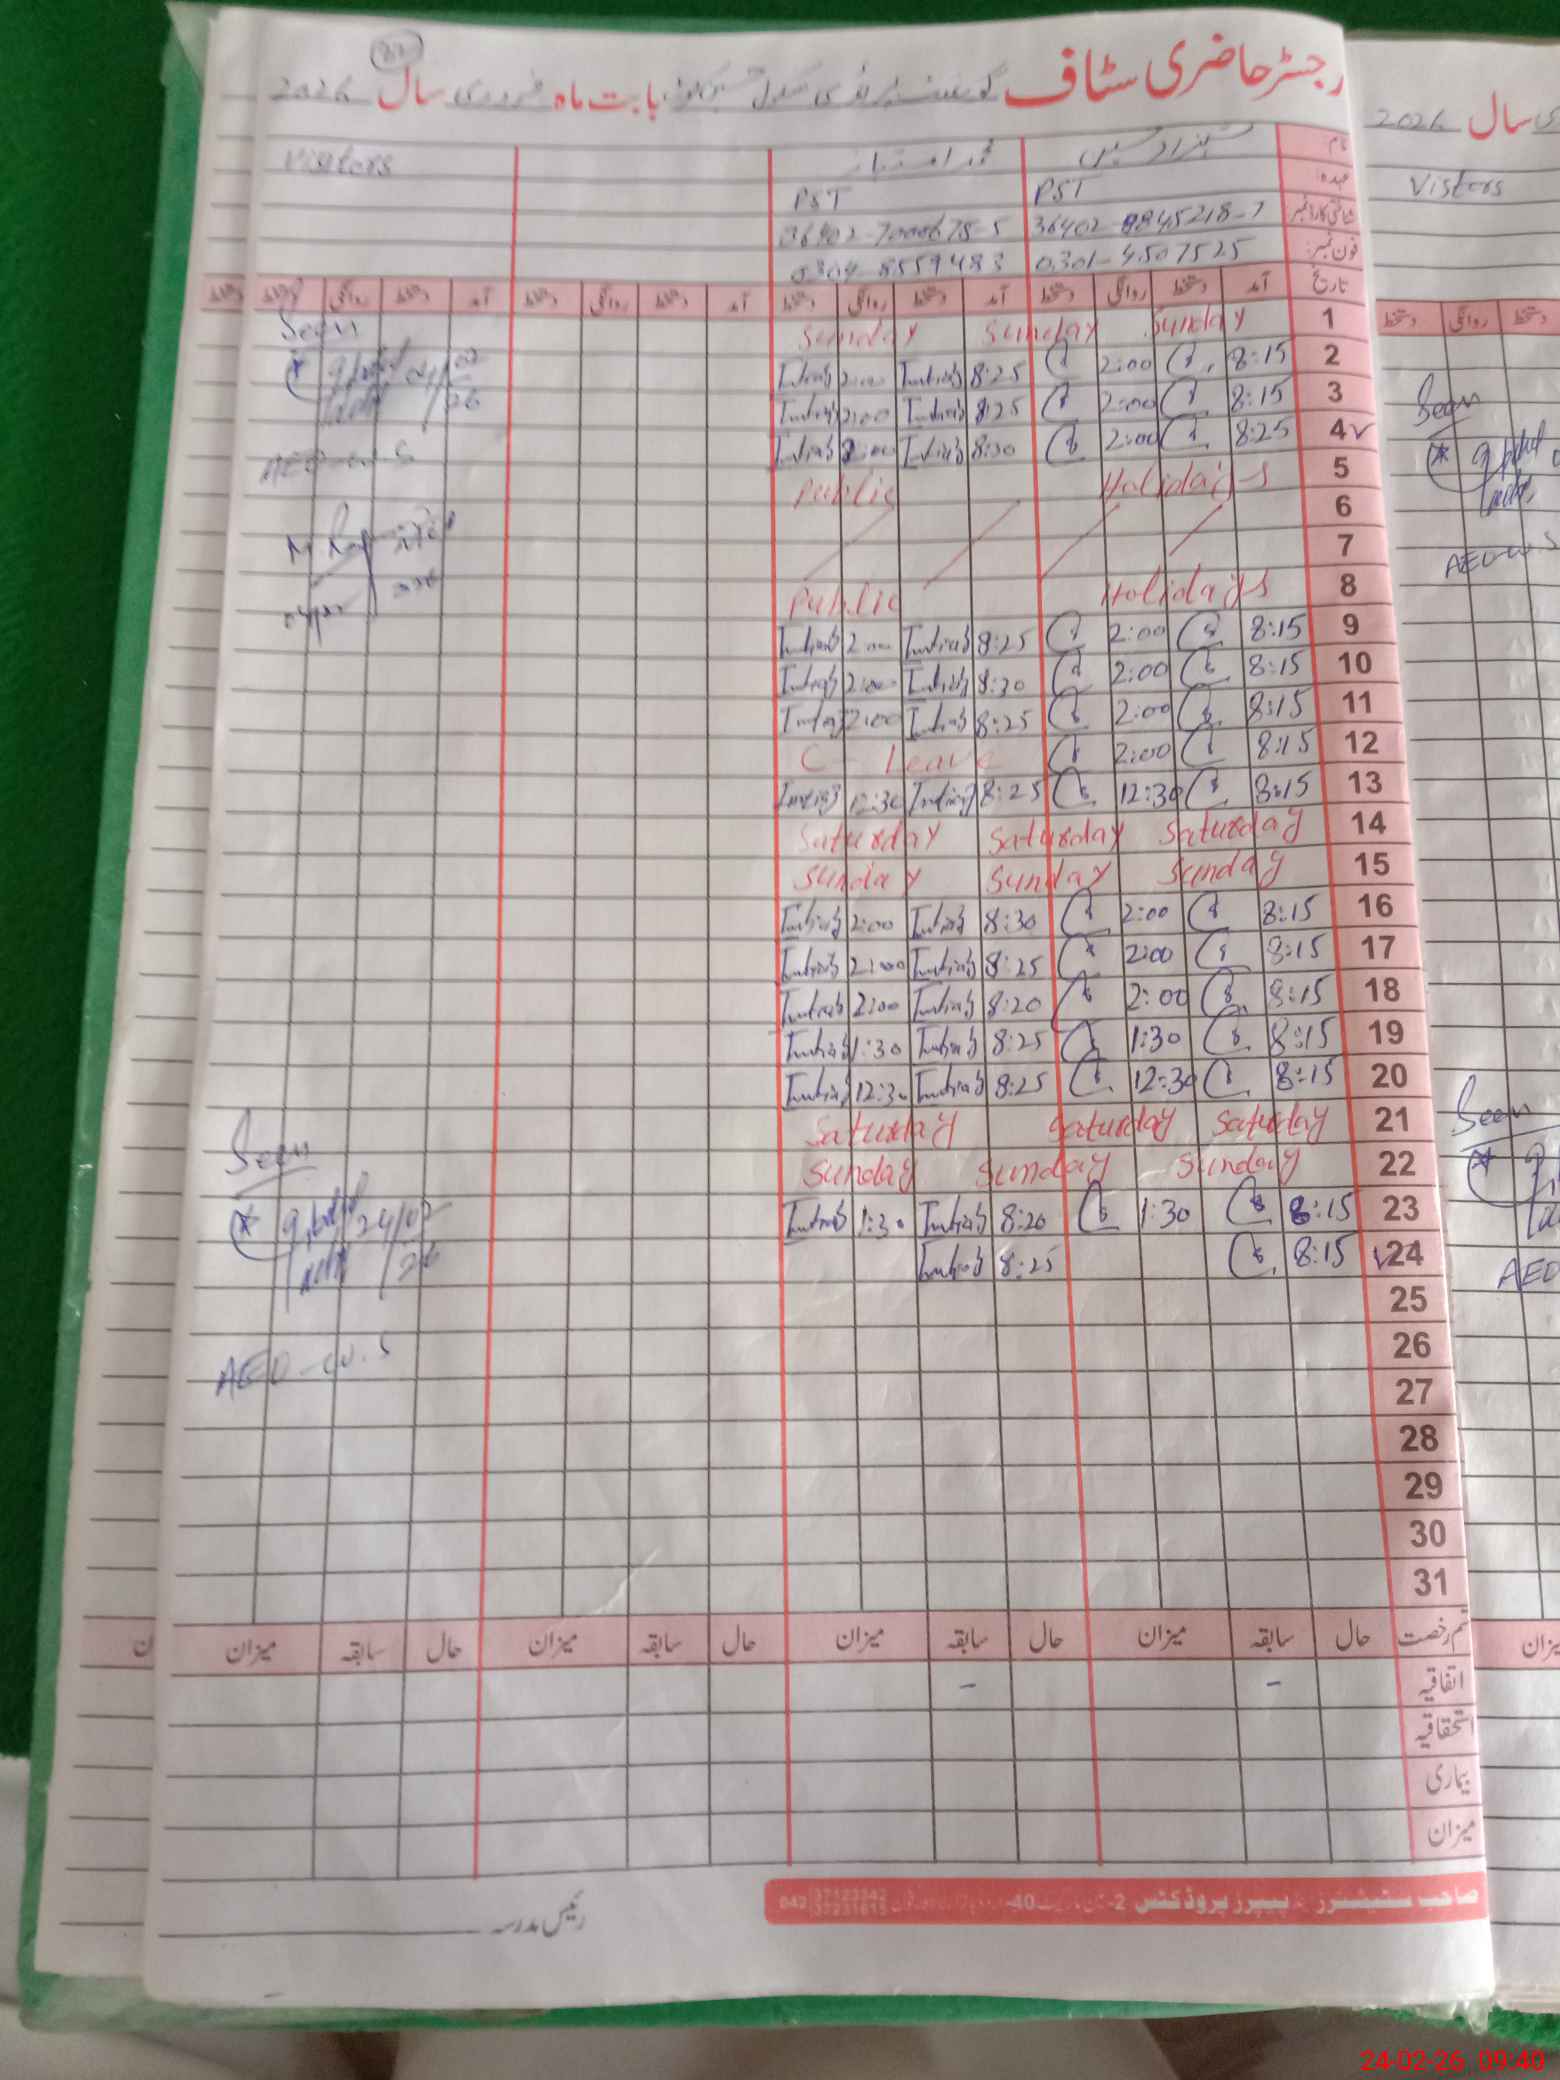 رجسٹر حاضری سٹاف گورنمنٹ پرائمری سکول بابت ماہ فروری سال 2026
Visitors
نام:
عہدہ: PST PST
شناختی کارڈ نمبر: 36402-8845218-7
فون نمبر: 0301-4507525 0304-8559483
تاریخ آمد دستخط روانگی دستخط آمد دستخط روانگی دستخط آمد دستخط روانگی دستخط آمد دستخط روانگی دستخط
1 Sunday Sunday Sunday Seen
2 8:15 2:00 8:25 Imtiaz 2:00 Imtiaz
3 8:15 2:00 8:25 Imtiaz 2:00 Imtiaz
4 8:25 2:00 8:30 Imtiaz 2:00 Imtiaz
AEO-W.S
5 Public Holidays
6
7
8 Public Holidays
9 8:15 2:00 8:25 Imtiaz 2:00 Imtiaz
10 8:15 2:00 8:30 Imtiaz 2:00 Imtiaz
11 8:15 2:00 8:25 Imtiaz 2:00 Imtiaz
12 8:15 2:00 C- Leave
13 8:15 12:30 8:25 Imtiaz 12:30 Imtiaz
14 Saturday Saturday Saturday
15 Sunday Sunday Sunday
16 8:15 2:00 8:30 Imtiaz 2:00 Imtiaz
17 8:15 2:00 8:25 Imtiaz 2:00 Imtiaz
18 8:15 2:00 8:20 Imtiaz 2:00 Imtiaz
19 8:15 1:30 8:25 Imtiaz 1:30 Imtiaz
20 8:15 12:30 8:25 Imtiaz 12:30 Imtiaz
21 Saturday Saturday Saturday
22 Sunday Sunday Sunday
Seen
23 8:15 1:30 8:20 Imtiaz 1:30 Imtiaz
24/02/26
24 8:15 8:25 Imtiaz
25
26
AEO-W.S
27
28
29
30
31
قسم رخصت حال سابقہ میزان حال سابقہ میزان حال سابقہ میزان حال سابقہ میزان
اتفاقیہ - -
استحقاقیہ
بیماری
میزان
صاحب سٹیشنرز پیپرز پروڈکٹس 2- 40- 042 37123342
رئیس مدرسہ
سال 2026
Vistors
دستخط روانگی دستخط
Seen
AEO-W.S
Seen
AEO
میزان
24-02-26 09:40